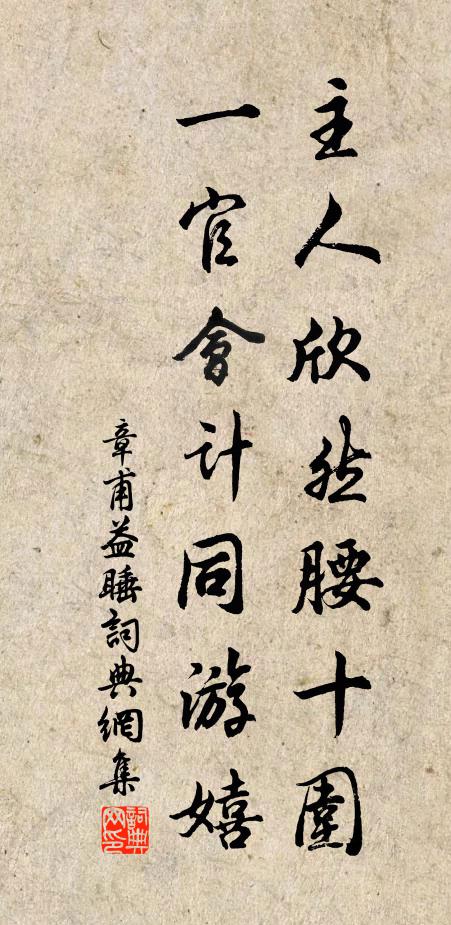 主人欣然腰十圍
一官會計同游嬉
章甫益睡詞典網集
詞典網印